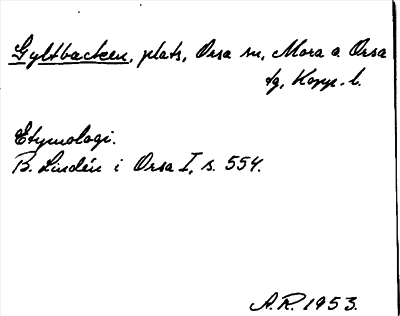 Gyltbacken, plats, Orsa sn, Mora o Orsa
tg, Kopp. l.
Etymologi.
B. Lindén i Orsa I, s. 554.
A.R. 1953.